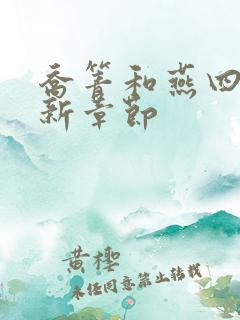 乔箐和燕四
新章节
黄樱
未经同意禁止转载